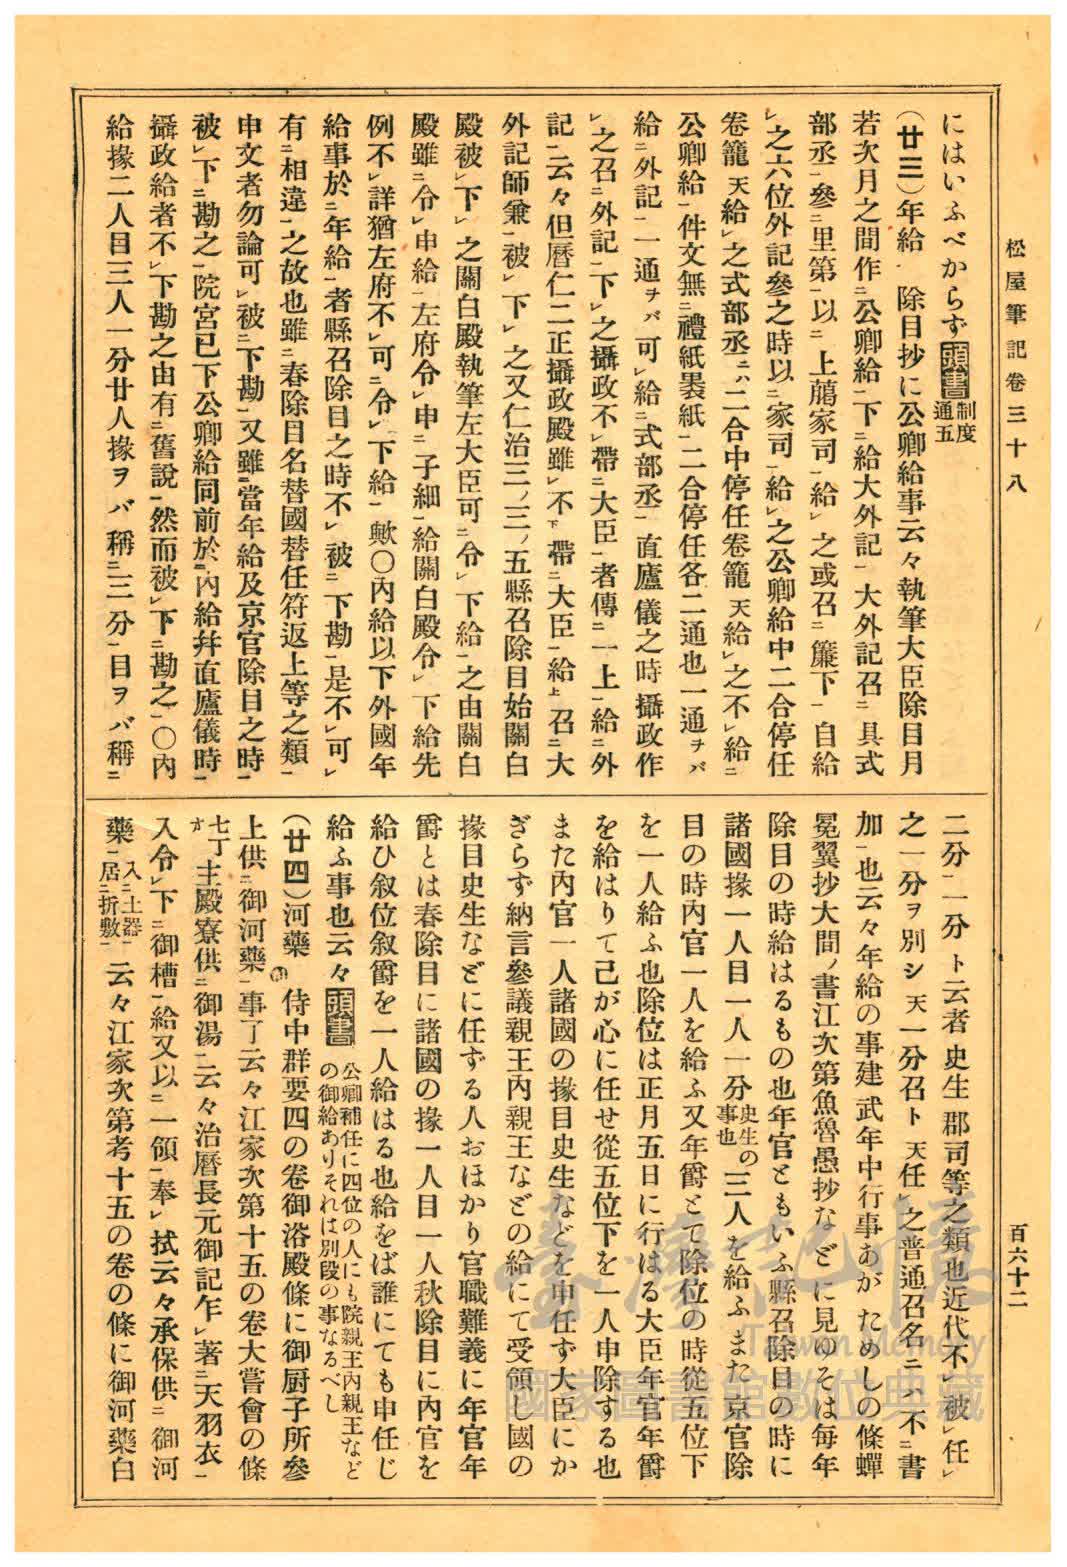 松屋筆記卷三十八
百六十二
にはいふべからず頭書制度通五
(廿三)年給 除目抄に公卿給事云々執筆大臣除目月
若次月之間作ニ公卿給一下ニ給大外記一大外記召ニ具式
部丞一參ニ里第一以ニ上﨟家司一給レ之或召ニ簾下一自給
レ之六位外記參之時以ニ家司一給レ之公卿給中二合停任
卷籠天給レ之式部丞ニハ二合中停任卷籠天給レ之不レ給ニ
公卿給一件文無ニ禮紙裏紙一二合停任各二通也一通ヲバ
給ニ外記一一通ヲバ可レ給ニ式部丞一直廬儀之時攝政作
レ之召ニ外記一下レ之攝政不レ帶ニ大臣一者傳ニ一上一給ニ外
記一云々但曆仁二正攝政殿雖レ不下帶ニ大臣一給上召ニ大
外記師兼一被レ下レ之又仁治三ノ三ノ五縣召除目始關白
殿被レ下レ之關白殿執筆左大臣可ニ令レ下給一之由關白
殿雖ニ令レ申給一左府令レ申ニ子細一給關白殿令レ下給先
例不レ詳猶左府不レ可ニ令レ下給一歟〇內給以下外國年
給事於ニ年給一者縣召除目之時不レ被ニ下勘一是不レ可レ
有ニ相違一之故也雖ニ春除目名替國替任符返上等之類一
申文者勿論可レ被ニ下勘一又雖ニ當年給及京官除目之時一
被レ下ニ勘之一院宮已下公卿給同前於ニ內給幷直廬儀時一
攝政給者不レ下勘之由有ニ舊說一然而被レ下ニ勘之一〇內
給掾二人目三人一分廿人掾ヲバ稱ニ三分一目ヲバ稱ニ
二分一一分ト云者史生郡司等之類也近代不レ被レ任レ
之一分ヲ別シ天一分召ト天任レ之普通召名ニハ不ニ書
加一也云々年給の事建武年中行事あがためしの條蟬
冕翼抄大間ノ書江次第魚魯愚抄などに見ゆそは每年
除目の時給はるもの也年官ともいふ縣召除目の時に
諸國掾一人目一人一分史生の事也三人を給ふまた京官除
目の時內官一人を給ふ又年爵とて除位の時從五位下
を一人給ふ也除位は正月五日に行はる大臣年官年爵
を給はりて己が心に任せ從五位下を一人申除する也
また內官一人諸國の掾目史生などを申任ず大臣にか
ぎらず納言參議親王內親王などの給にて受領し國の
掾目史生などに任ずる人おほかり官職難義に年官年
爵とは春除目に諸國の掾一人目一人秋除目に內官を
給ひ叙位叙爵を一人給はる也給をば誰にても申任じ
給ふ事也云々頭書公卿補任に四位の人にも院親王內親王などの御給ありそれは別段の事なるべし
(廿四)河藥 侍中群要四の卷御浴殿條に御厨子所參
上供ニ御河藥一事了云々江家次第十五の卷大嘗會の條
七丁オ主殿寮供ニ御湯一云々治曆長元御記乍レ著ニ天羽衣一
入令レ下ニ御槽一給又以ニ一領一奉レ拭云々承保供ニ御河
藥一入ニ土器一居ニ折敷一云々江家次第考十五の卷の條に御河藥白
臺灣記憶
Taiwan Memory
國家圖書館數位典藏